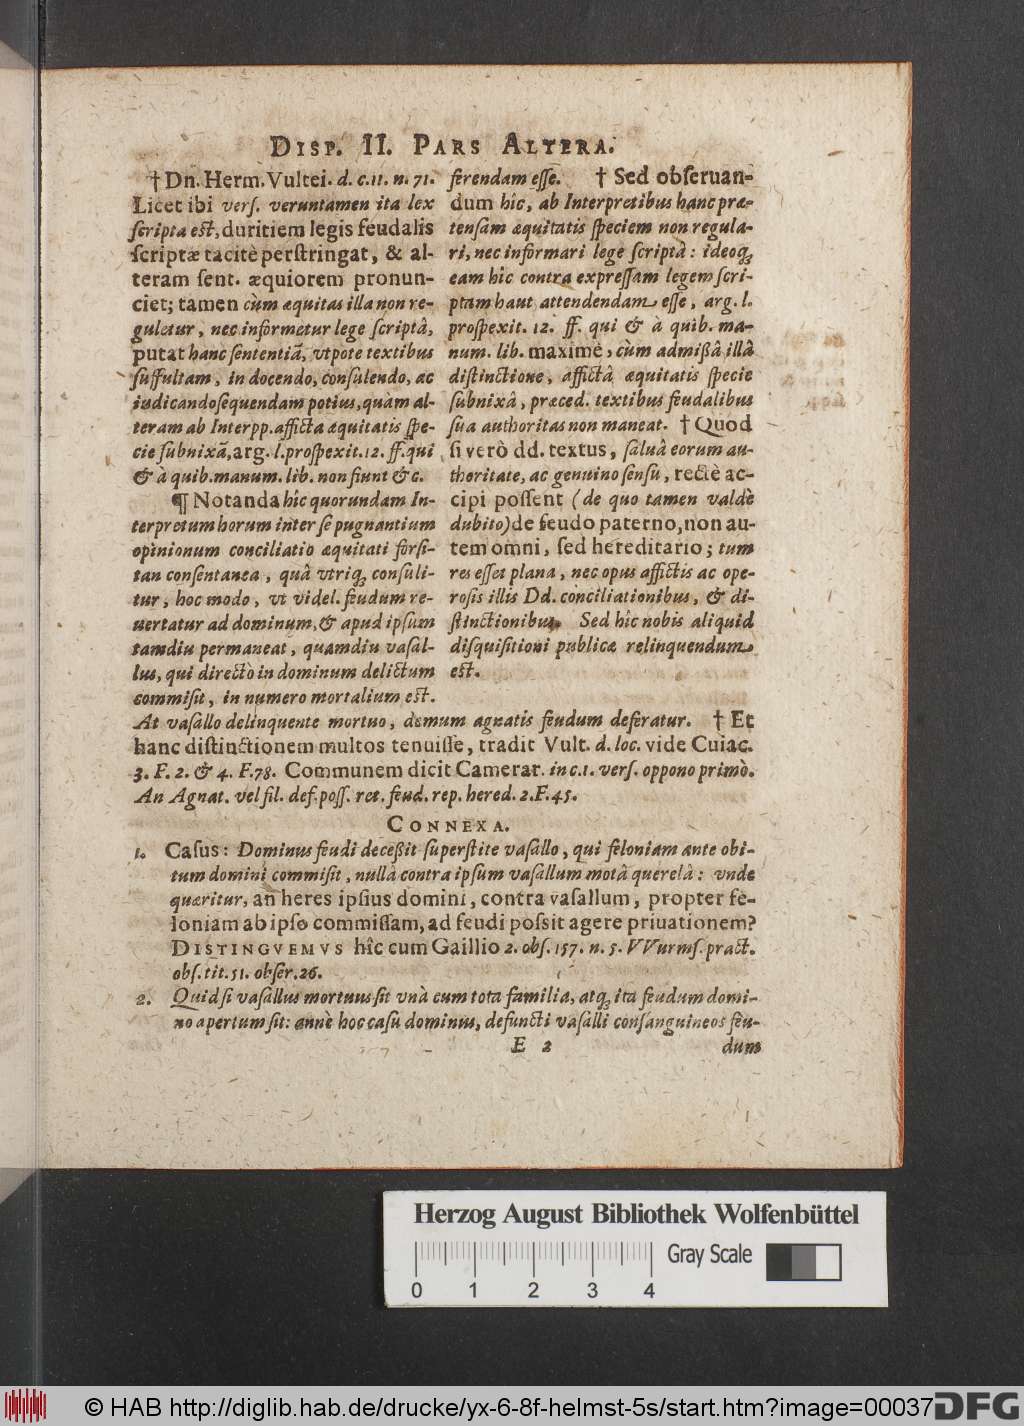 DISP. II. PARS ALTERA.
† Dn. Herm. Vultei. d. c. 11. n. 71.
Licet ibi vers. veruntamen ita lex
scripta est, duritiem legis feudalis
scriptæ tacitè perstringat, & al-
teram sent. æquiorem pronun-
ciet; tamen cùm æquitas illa non re-
guletur, nec informetur lege scriptâ,
putat hanc sententiã, vtpote textibus
suffultam, in docendo, consulendo, ac
iudicando sequendam potius, quàm al-
teram ab Interpp. afficta æquitatis spe-
cie subnixã, arg. l. prospexit. 12. ff. qui
& à quib. manum. lib. non fiunt &c.
¶ Notanda hîc quorundam In-
terpretum horum inter se pugnantium
opinionum conciliatio æquitati forsi-
tan consentanea, quâ vtriq; consuli-
tur, hoc modo, vt videl. feudum re-
uertatur ad dominum, & apud ipsum
tamdiu permaneat, quamdiu vasal-
lus, qui directò in dominum delictum
commisit, in numero mortalium est.
ferendam esse. † Sed obseruan-
dum hîc, ab Interpretibus hanc præ-
tensam æquitatis speciem non regula-
ri, nec informari lege scriptâ: ideoq;
eam hîc contra expressam legem scri-
ptam haut attendendam esse, arg. l.
prospexit. 12. ff. qui & à quib. ma-
num. lib. maximè, cùm admißâ illâ
distinctione, affictâ æquitatis specie
subnixâ, præced. textibus feudalibus
sua authoritas non maneat. † Quod
si verò dd. textus, saluâ eorum au-
thoritate, ac genuino sensu, rectè ac-
cipi possent (de quo tamen valdè
dubito) de feudo paterno, non au-
tem omni, sed hereditario; tum
res esset plana, nec opus affictis ac ope-
rosis illis Dd. conciliationibus, & di-
stinctionibus. Sed hîc nobis aliquid
disquisitioni publicæ relinquendum
est.
At vasallo delinquente mortuo, demum agnatis feudum deferatur. † Et
hanc distinctionem multos tenuisse, tradit Vult. d. loc. vide Cuiac.
3. F. 2. & 4. F. 78. Communem dicit Camerar. in c. 1. vers. oppono primò.
An Agnat. vel fil. def. poss. ret. feud. rep. hered. 2. F. 45.
CONNEXA.
1. Casus: Dominus feudi deceßit superstite vasallo, qui feloniam ante obi-
tum domini commisit, nullâ contra ipsum vasallum motâ querelâ: vnde
quæritur, an heres ipsius domini, contra vasallum, propter fe-
loniam ab ipso commissam, ad feudi possit agere priuationem?
DISTINGVEMVS hîc cum Gaillio 2. obs. 157. n. 5. VVurms. pract.
obs. tit. 51. obser. 26.
2. Quid si vasallus mortuus sit vnà cum tota familia, atq; ita feudum domi-
no apertum sit: annè hoc casu dominus, defuncti vasalli consanguineos feu-
E 2 dum
Herzog August Bibliothek Wolfenbüttel
Gray Scale
0 1 2 3 4
© HAB http://diglib.hab.de/drucke/yx-6-8f-helmst-5s/start.htm?image=00037
DFG